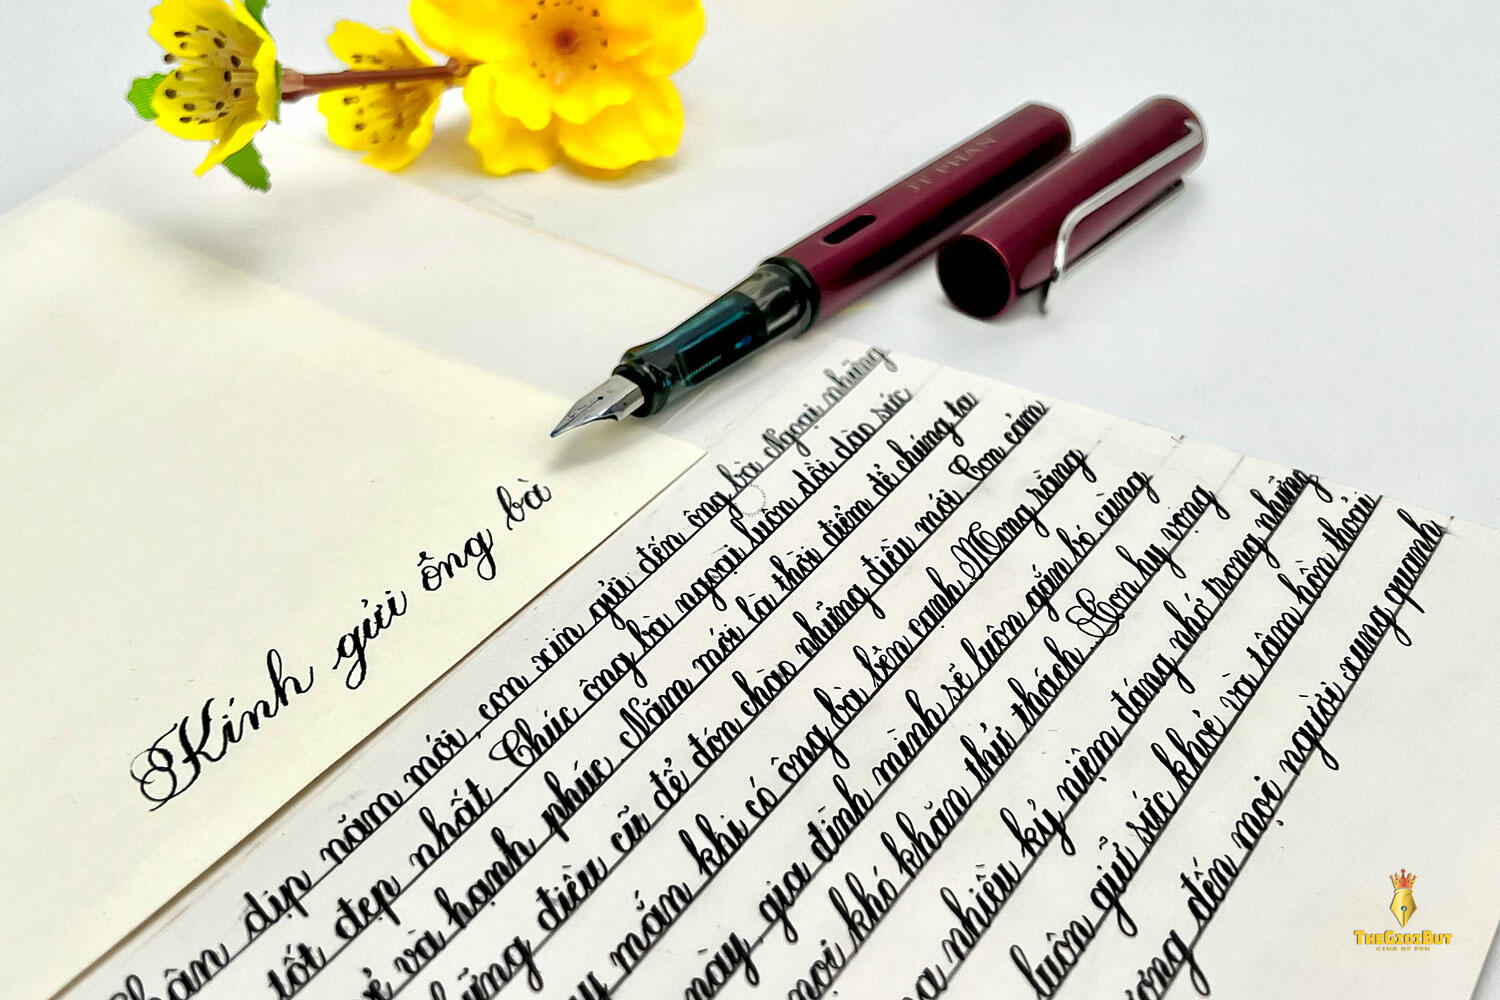 Kính gửi ông bà
Nhân dịp năm mới, con xin gửi đến ông bà Ngoại những
tốt đẹp nhất. Chúc ông bà ngoại luôn dồi dào sức
và hạnh phúc. Năm mới là thời điểm để chúng ta
những điều cũ để đón chào những điều mới. Con cảm
may mắn khi có ông bà bên cạnh. Mong rằng
này, gia đình mình sẽ luôn gắn bó, cùng
mọi khó khăn thử thách. Con hy vọng
nhiều kỷ niệm đáng nhớ trong những
luôn giữ sức khỏe và tâm hồn thoải
đến mọi người xung quanh
JT PHAN
THEGIOIBUT
KING OF PEN